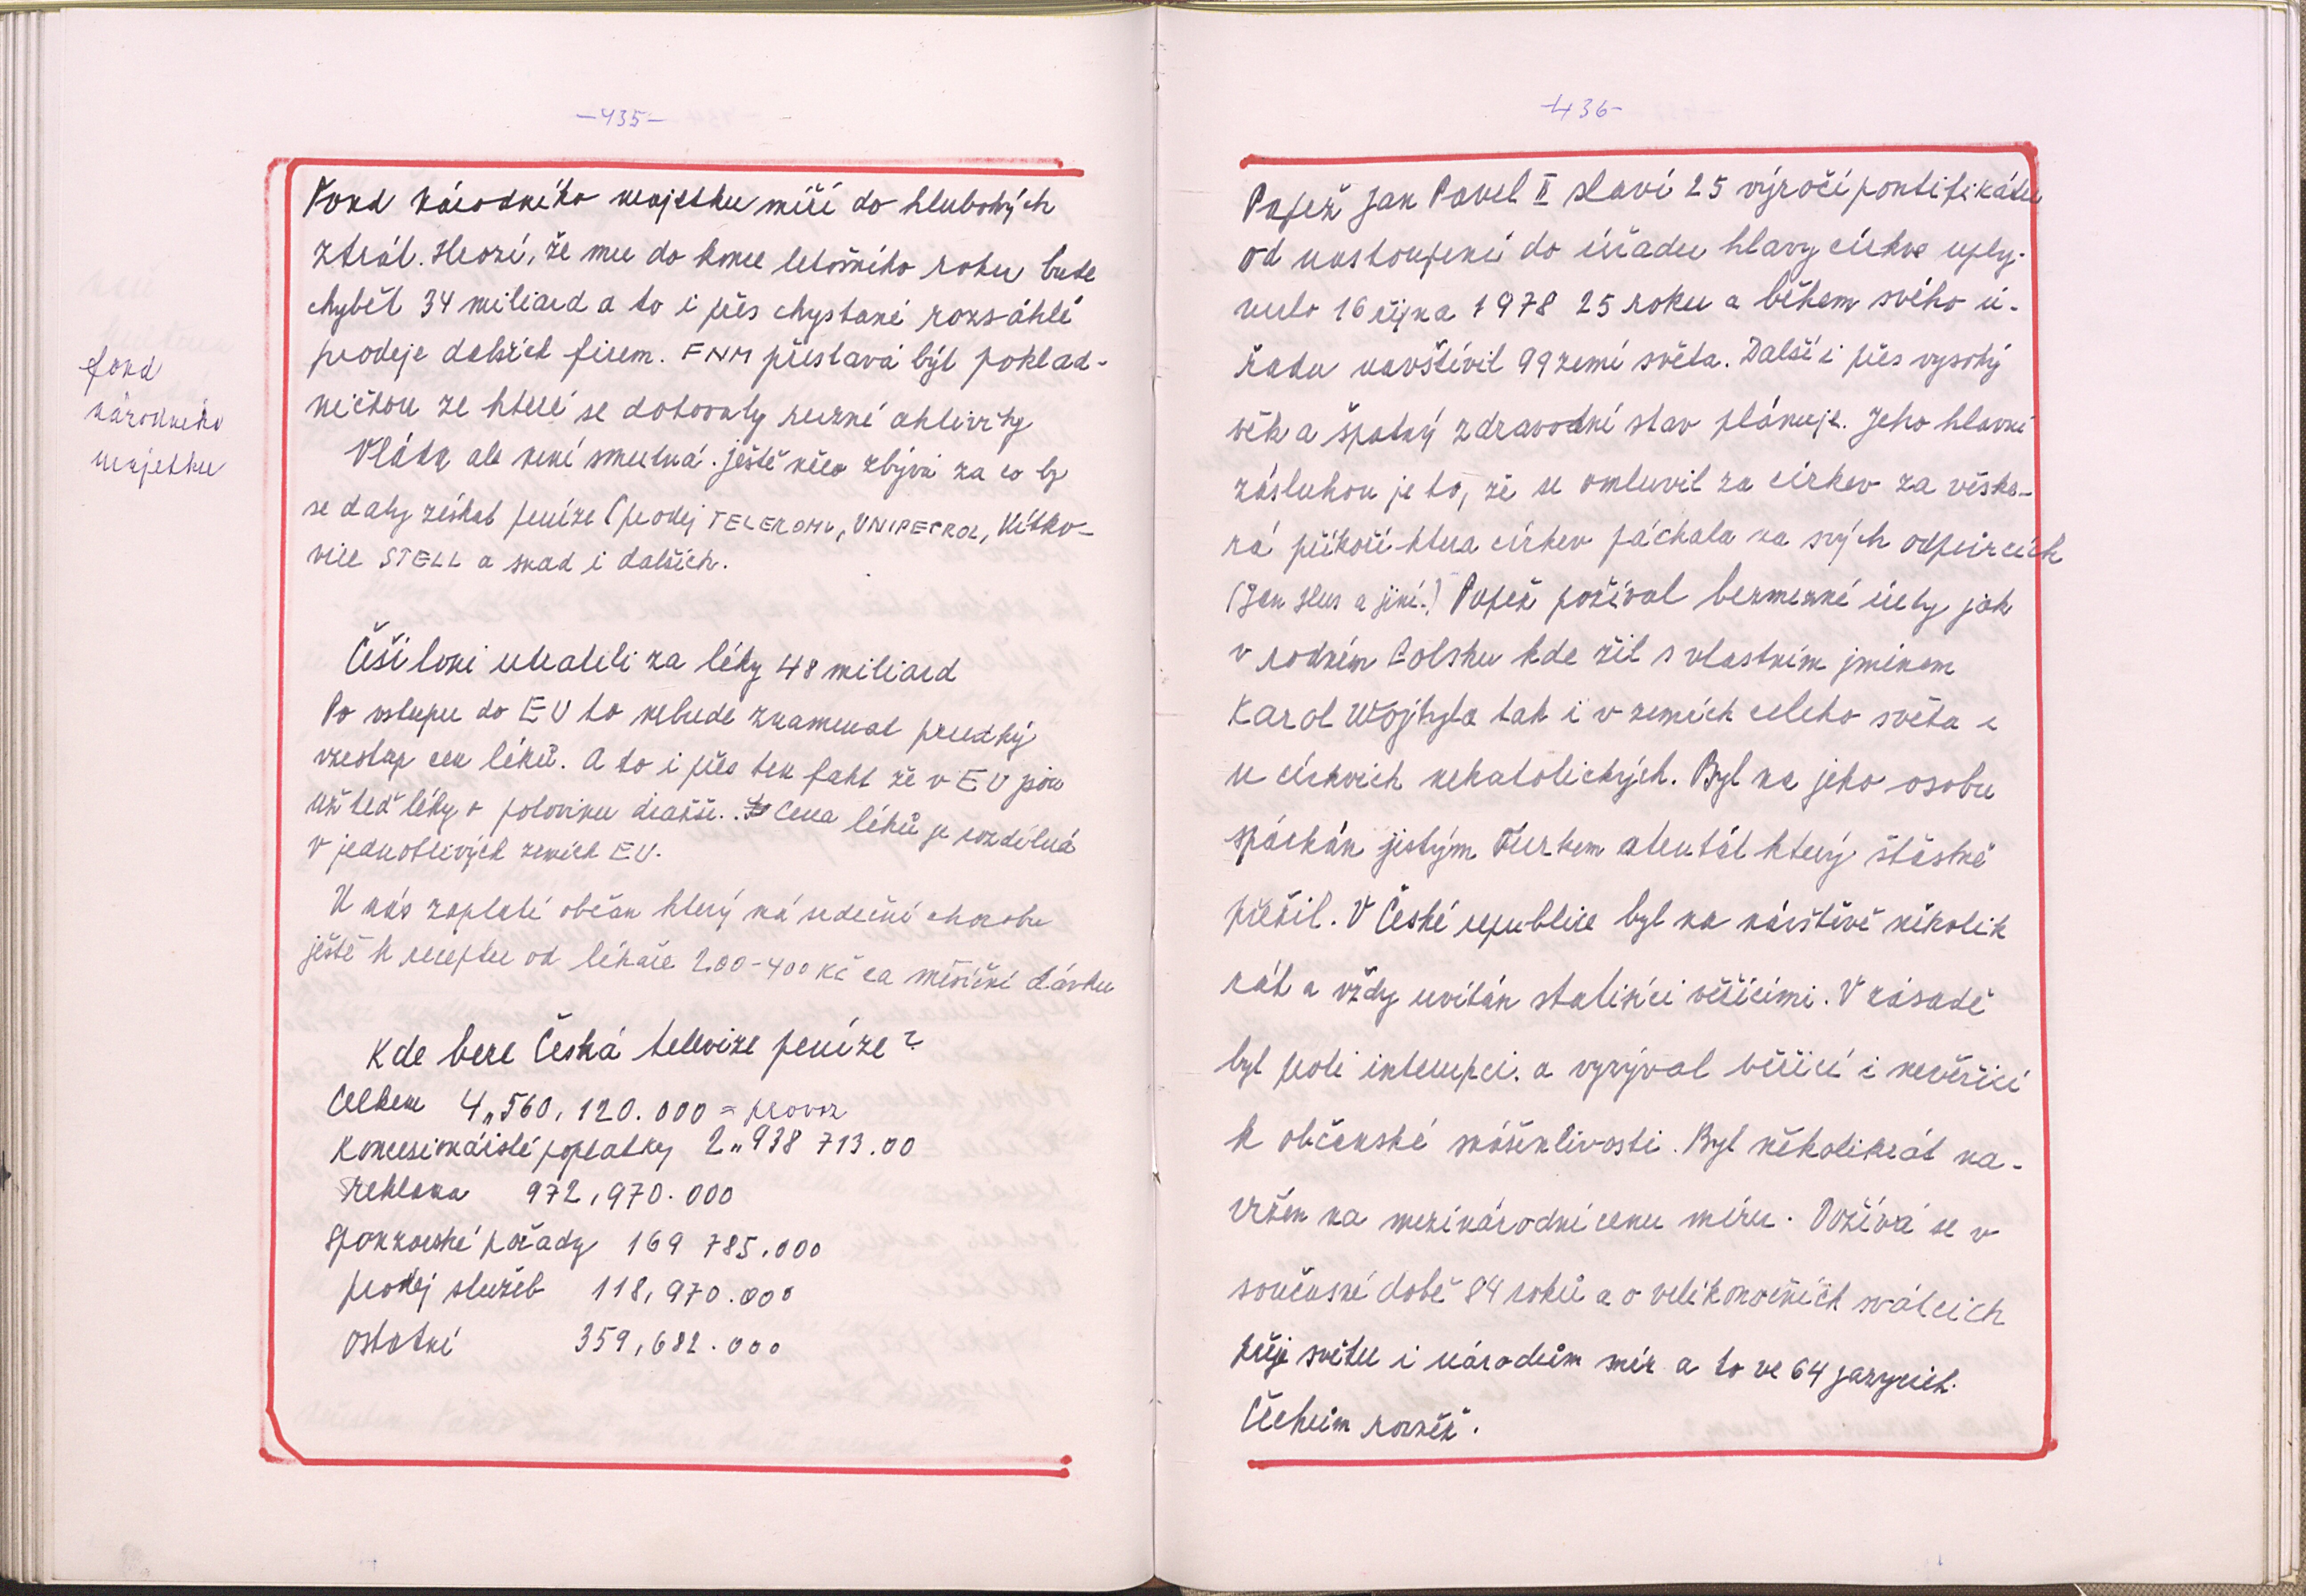 -435-
Fond národního majetku míří do hlubokých
ztrát. Hrozí, že mu do konce letošního roku bude
chybět 34 miliard a to i přes chystané rozsáhlé
prodeje dalších firem. FNM přestává být poklad-
ničkou ze které se dotovaly ruzné aktivity
Vláda ale není smutná. Ještě něco zbývá za co by
se daly získat peníze (prodej TELEKOMU, UNIPETROL, Vítko-
vice STELL a snad i dalších.
fond
národního
majetku
Češi loni utratili za léky 48 miliard
Po vstupu do EU to nebude znamenat prudký
vzestup cen léků. A to i přes ten fakt že v EU jsou
už teď léky o polovinu dražší. Cena léků je rozdílná
v jednotlivých zemích EU.
U nás zaplatí občan který má srdeční chorobu
ještě k receptu od lékaře 200-400 Kč za měsíční dávku
Kde bere Česká televize peníze?
Celkem 4„560,120.000 = provoz
Koncesionářské poplatky 2„938 713.00
Reklama 972,970.000
Sponzorské pořady 169 785.000
prodej služeb 118,970.000
ostatní 359,682.000
-436-
Papež Jan Pavel II slaví 25 výročí pontifikátu
od nastoupení do úřadu hlavy církve uply-
nulo 16 října 1978 25 roku a během svého ú-
řadu navštívil 99 zemí světa. Další i přes vysoký
věk a špatný zdravodní stav plánuje. Jeho hlavní
zásluhou je to, že se omluvil za církev za véške-
rá příkoří ktera církev páchala na svých odpůrcích
(Jan Hus a jiní.) Papež požíval bezmezné úcty jak
v rodném Polsku kde žil s vlastním jménem
Karol Wojtyla tak i v zemích celého světa i
u církvích nekatolických. Byl na jeho osobu
spáchán jistým Turkem atentát který štastně
přežil. V České republice byl na návštěvě několik
rát a vždy uvítán statisíci věřícími. V zásadě
byl proti interupci. a vyzýval věřící i nevěřící
k občanské snášenlivosti. Byl několikrát na-
vržen na mezinárodní cenu míru. Dožívá se v
současné době 84 roků a o velikonočních svátcích
přeje světu i národům mír a to ve 64 jazycích.
Čechům rovněž.